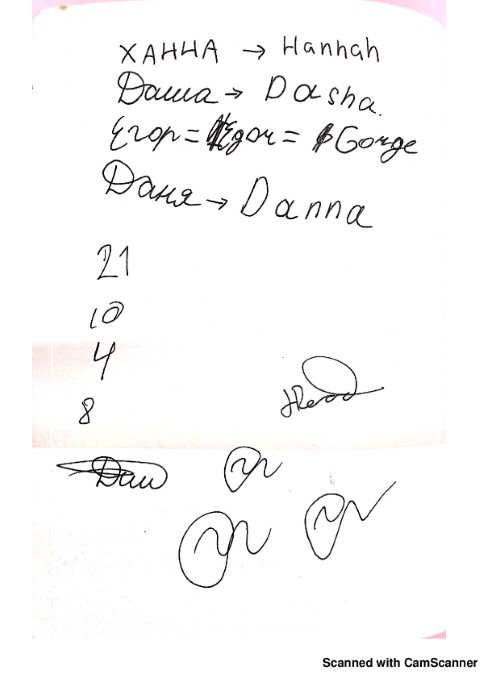 ХАННА → Hannah
Даша → Dasha.
Егор = Egor = Gorge
Даня → Danna
21
10
4
8
Даш
Scanned with CamScanner